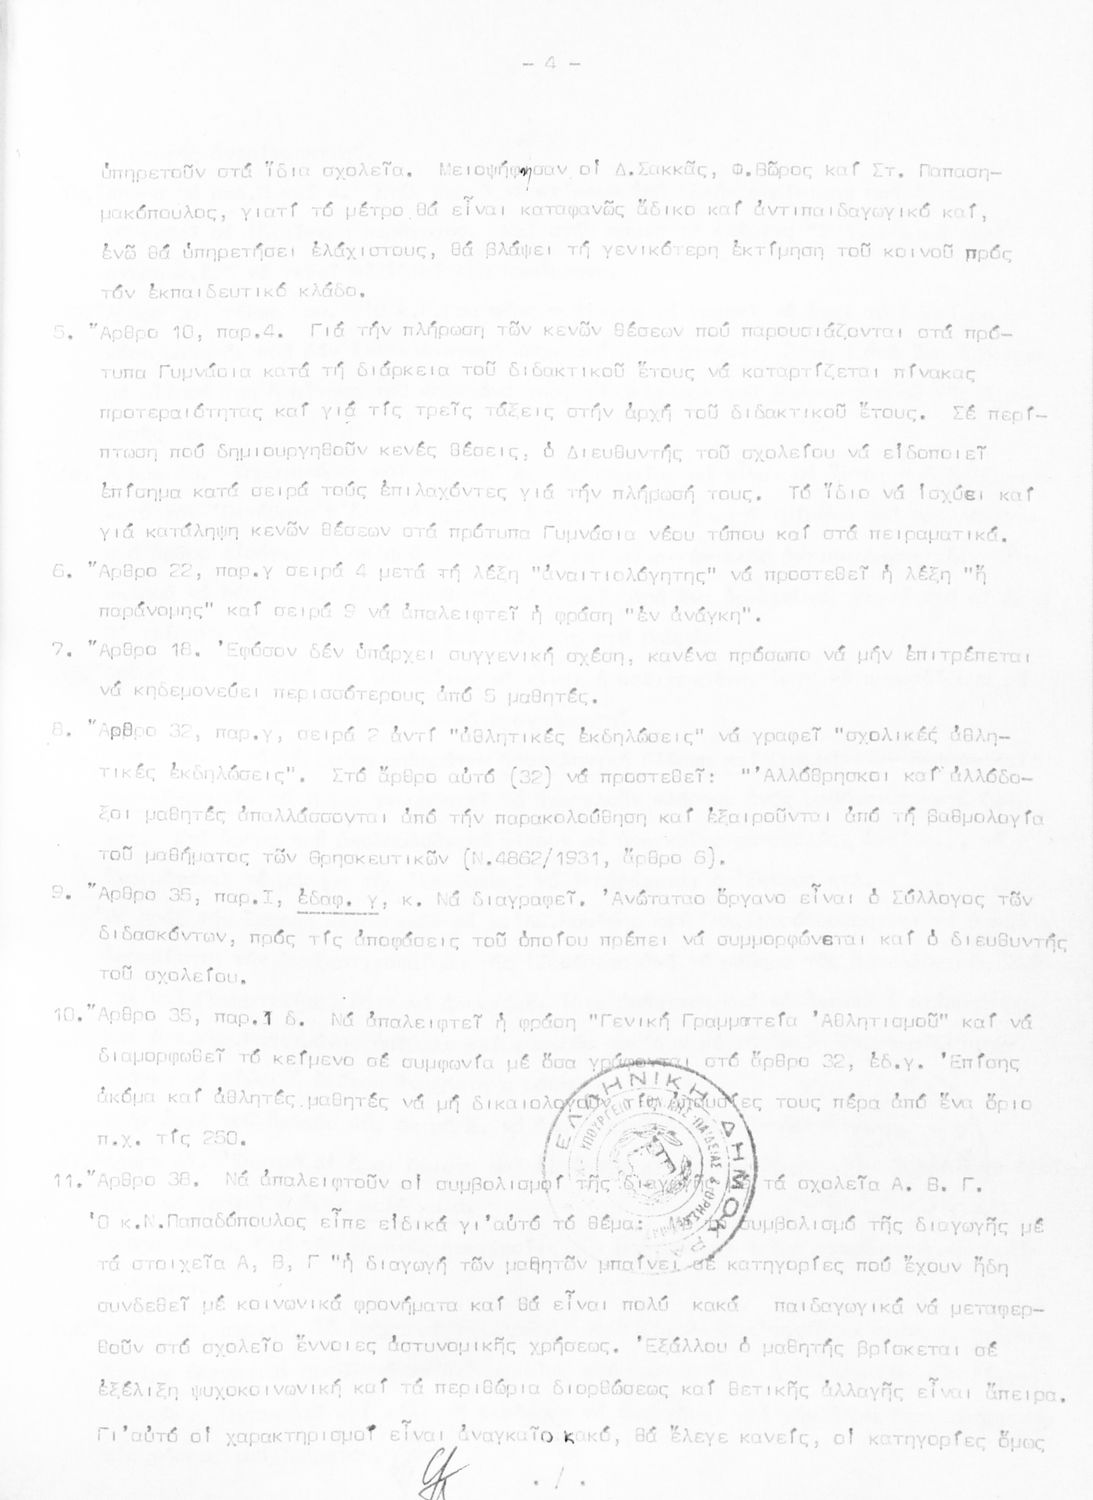 - 4 -
ὑπηρετοῦν στά ἴδια σχολεῖα. Μειοψήφησαν οἱ Δ.Σακκᾶς, Φ.Βῶρος καί Στ. Παπαση-
μακόπουλος, γιατί τό μέτρο θά εἶναι καταφανῶς ἄδικο καί ἀντιπαιδαγωγικό καί,
ἐνῶ θά ὑπηρετήσει ἐλάχιστους, θά βλάψει τή γενικότερη ἐκτίμηση τοῦ κοινοῦ πρός
τόν ἐκπαιδευτικό κλάδο.
5. Ἄρθρο 10, παρ.4. Γιά τήν πλήρωση τῶν κενῶν θέσεων πού παρουσιάζονται στά πρό-
τυπα Γυμνάσια κατά τή διάρκεια τοῦ διδακτικοῦ ἔτους νά καταρτίζεται πίνακας
προτεραιότητας καί γιά τίς τρεῖς τάξεις στήν ἀρχή τοῦ διδακτικοῦ ἔτους. Σέ περί-
πτωση πού δημιουργηθοῦν κενές θέσεις, ὁ Διευθυντής τοῦ σχολείου νά εἰδοποιεῖ
ἐπίσημα κατά σειρά τούς ἐπιλαχόντες γιά τήν πλήρωσή τους. Τό ἴδιο νά ἰσχύει καί
γιά κατάληψη κενῶν θέσεων στά πρότυπα Γυμνάσια νέου τύπου καί στά πειραματικά.
6. Ἄρθρο 22, παρ.γ σειρά 4 μετά τή λέξη "ἀναιτιολόγητης" νά προστεθεῖ ἡ λέξη "ἤ
παράνομης" καί σειρά 9 νά ἀπαλειφτεῖ ἡ φράση "ἐν ἀνάγκη".
7. Ἄρθρο 18. Ἐφόσον δέν ὑπάρχει συγγενική σχέση, κανένα πρόσωπο νά μήν ἐπιτρέπεται
νά κηδεμονεύει περισσότερους ἀπό 5 μαθητές.
8. Ἄρθρο 32, παρ.γ, σειρά 2 ἀντί "ἀθλητικές ἐκδηλώσεις" νά γραφεῖ "σχολικές ἀθλη-
τικές ἐκδηλώσεις". Στό ἄρθρο αὐτό (32) νά προστεθεῖ: "Ἀλλόθρησκοι καί ἀλλόδο-
ξοι μαθητές ἀπαλλάσσονται ἀπό τήν παρακολούθηση καί ἐξαιροῦνται ἀπό τή βαθμολογία
τοῦ μαθήματος τῶν Θρησκευτικῶν (Ν.4862/1931, ἄρθρο 6).
9. Ἄρθρο 35, παρ.Ι, ἐδαφ. γ, κ. Νά διαγραφεῖ. Ἀνώταταο ὄργανο εἶναι ὁ Σύλλογος τῶν
διδασκόντων, πρός τίς ἀποφάσεις τοῦ ὁποίου πρέπει νά συμμορφώνεται καί ὁ διευθυντής
τοῦ σχολείου.
10. Ἄρθρο 35, παρ.1 δ. Νά ἀπαλειφτεῖ ἡ φράση "Γενική Γραμματεία Ἀθλητισμοῦ" καί νά
διαμορφωθεῖ τό κείμενο σέ συμφωνία μέ ὅσα γράφονται στό ἄρθρο 32, ἐδ.γ. Ἐπίσης
ἀκόμα καί ἀθλητές μαθητές νά μή δικαιολογοῦν τίς ἀπουσίες τους πέρα ἀπό ἕνα ὅριο
π.χ. τίς 250.
11. Ἄρθρο 38. Νά ἀπαλειφτοῦν οἱ συμβολισμοί τῆς διαγωγῆς τά σχολεῖα Α. Β. Γ.
Ὁ κ.Ν.Παπαδόπουλος εἶπε εἰδικά γι'αὐτό τό θέμα: συμβολισμό τῆς διαγωγῆς μέ
τά στοιχεῖα Α, Β, Γ "ἡ διαγωγή τῶν μαθητῶν μπαίνει σέ κατηγορίες πού ἔχουν ἤδη
συνδεθεῖ μέ κοινωνικά φρονήματα καί θά εἶναι πολύ κακό παιδαγωγικά νά μεταφερ-
θοῦν στό σχολεῖο ἔννοιες ἀστυνομικῆς χρήσεως. Ἐξάλλου ὁ μαθητής βρίσκεται σέ
ἐξέλιξη ψυχοκοινωνική καί τά περιθώρια διορθώσεως καί θετικῆς ἀλλαγῆς εἶναι ἄπειρα.
Γι'αὐτό οἱ χαρακτηρισμοί εἶναι ἀναγκαῖο κακό, θά ἔλεγε κανείς, οἱ κατηγορίες ὅμως
. / .
ΕΛΛΗΝΙΚΗ ΔΗΜΟΚΡΑ
ΥΠΟΥΡΓΕΙΟ ΕΘΝΙΚΗΣ ΠΑΙΔΕΙΑΣ & ΘΡΗΣΚ